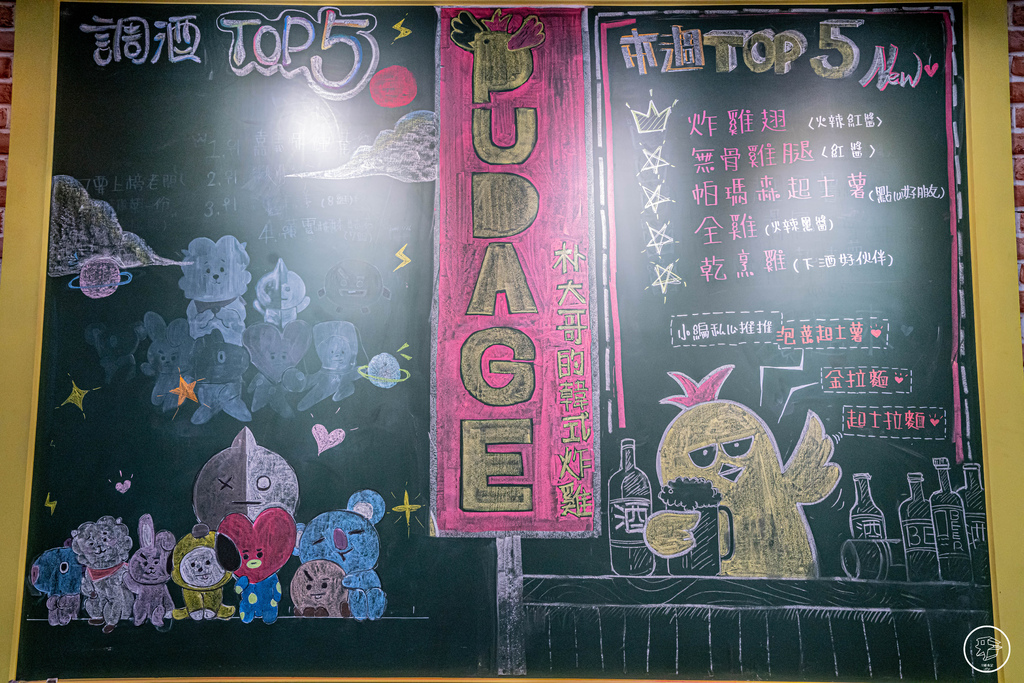 調酒 TOP5
1.
2.
3.
4.
PUDAGE
朴大哥的韓式炸雞
本週TOP 5 New
炸雞翅 (火辣紅醬)
無骨雞腿 (紅醬)
帕瑪森起士薯 (點心好朋友)
全雞 (火辣黑醬)
乾烹雞 (下酒好伙伴)
小編私心推推
泡菜起士薯
金拉麵
起士拉麵
酒
酒
BE
BEER
酒